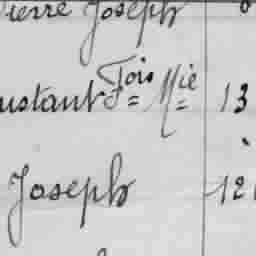 ierre Joseph
ustant Fois Mie 13
Joseph 12